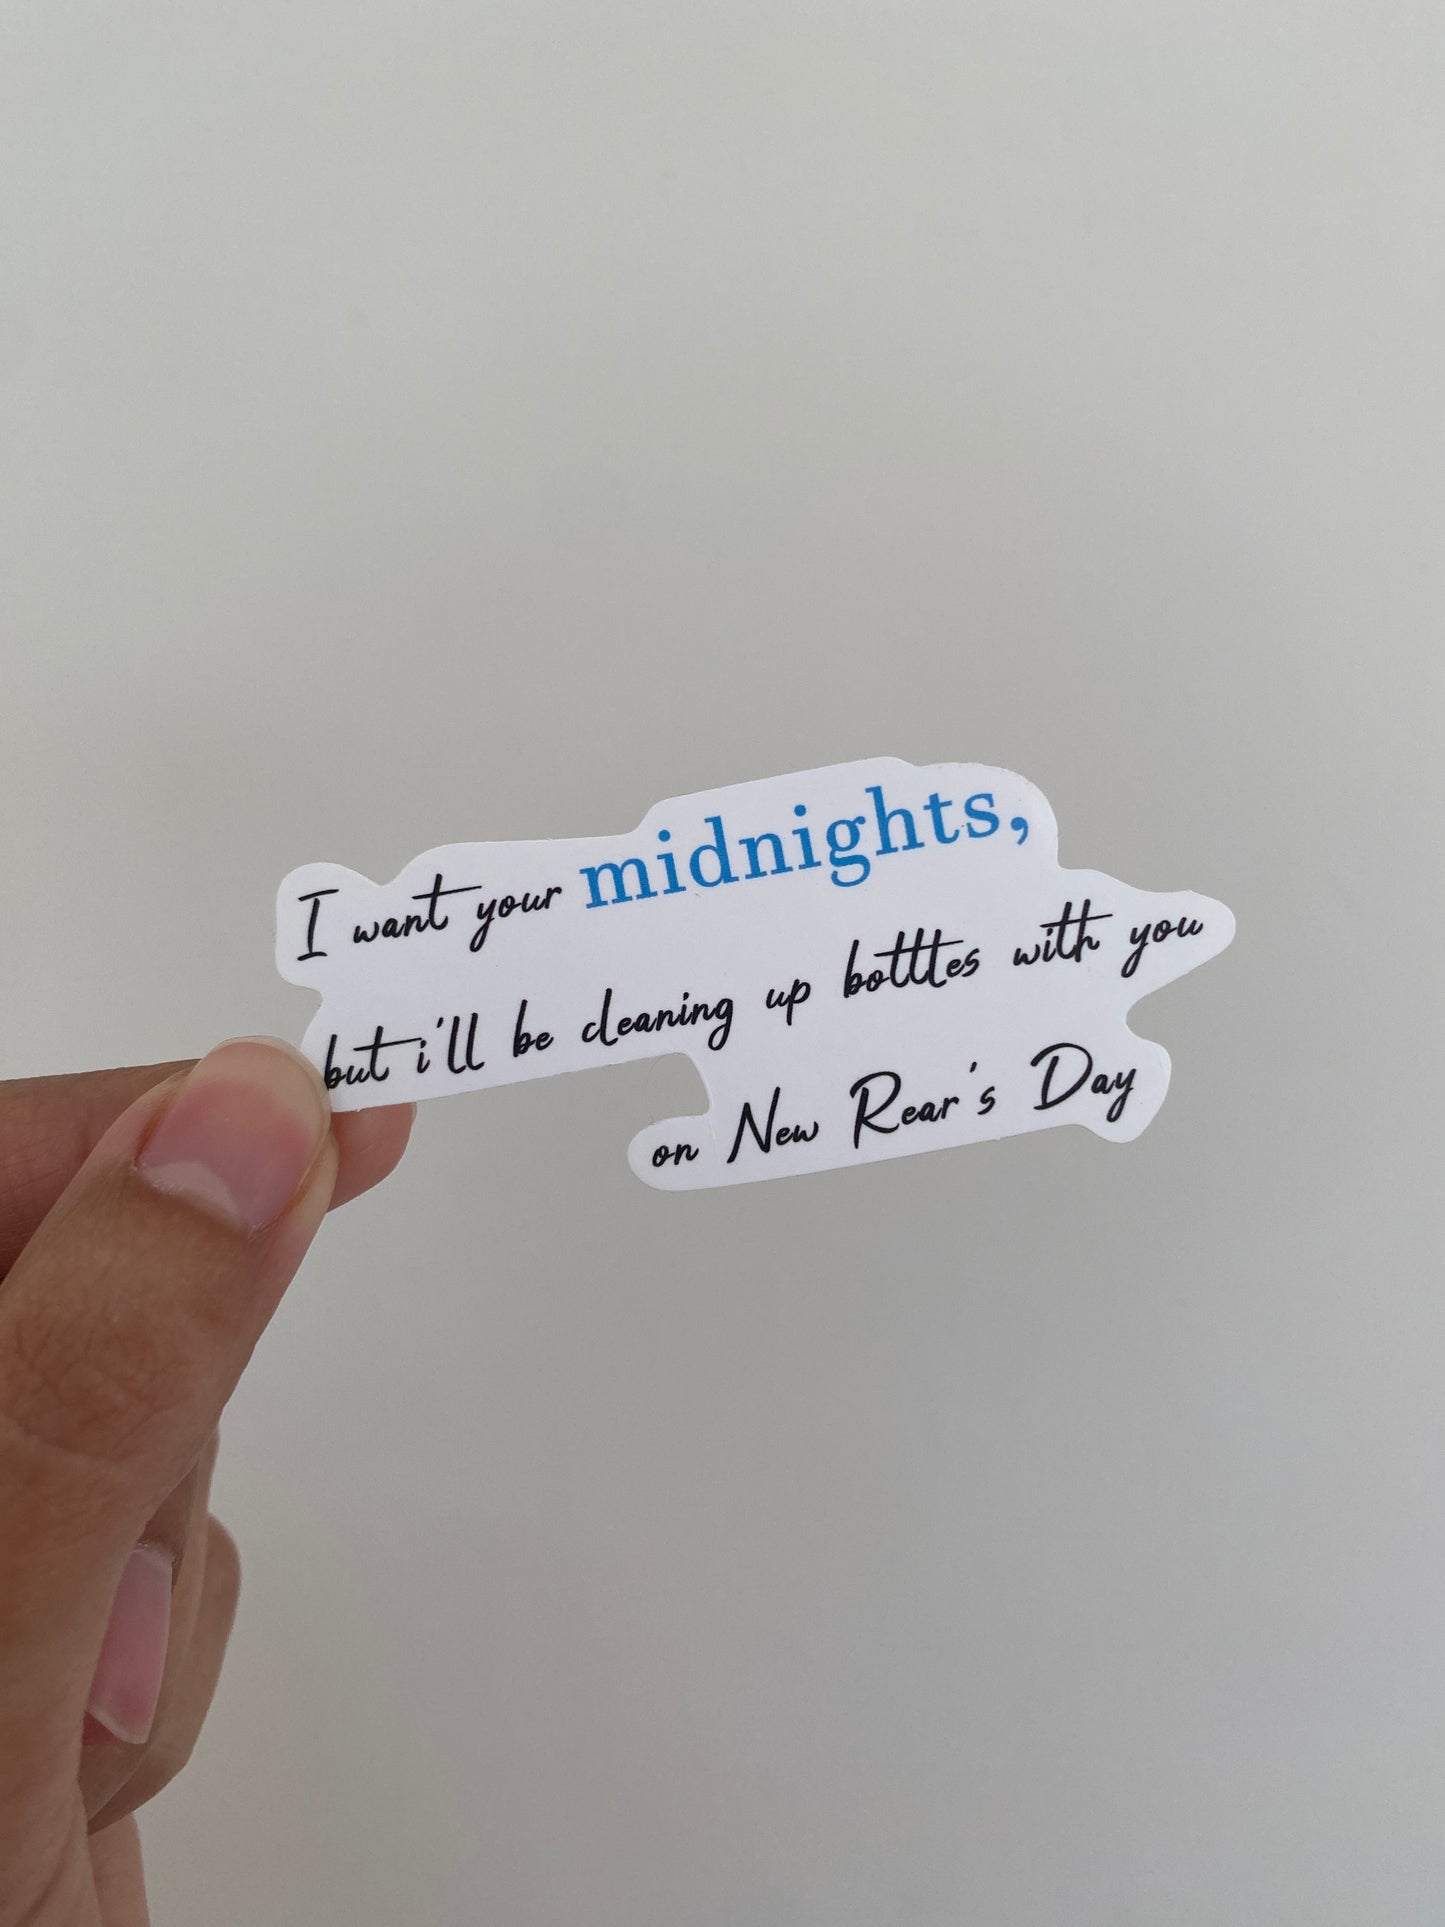 I want your midnights,
but i'll be cleaning up botttes with you
on New Rear's Day